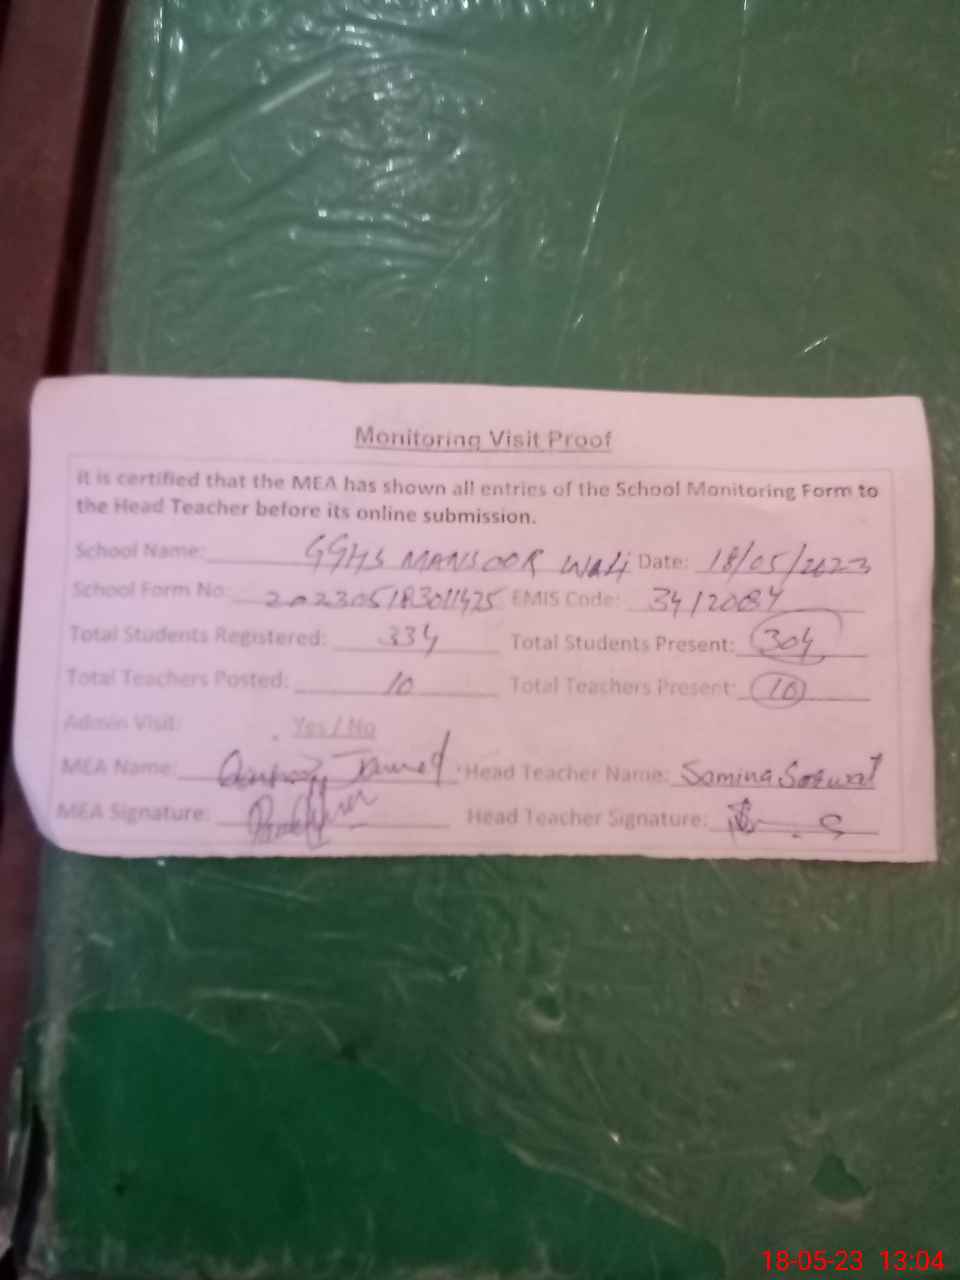 Monitoring Visit Proof
it is certified that the MEA has shown all entries of the School Monitoring Form to
the Head Teacher before its online submission.
School Name: GGHS MANSOOR Wali Date: 18/05/2023
School Form No: 202305183011425 EMIS Code: 3412084
Total Students Registered: 334 Total Students Present: 304
Total Teachers Posted: 10 Total Teachers Present: 10
Admin Visit: Yes / No
MEA Name: Head Teacher Name: Samina Sarwat
MEA Signature: Head Teacher Signature:
18-05-23 13:04